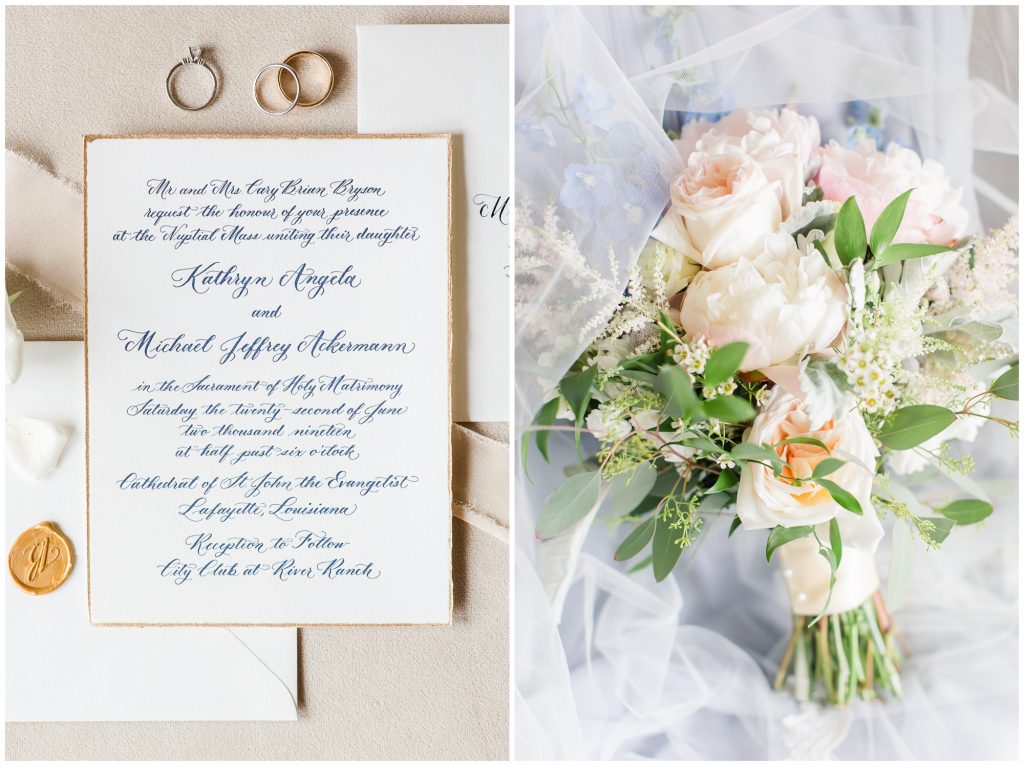 Mr and Mrs Cary Brian Bryson
request the honour of your presence
at the Nuptial Mass uniting their daughter
Kathryn Angela
and
Michael Jeffrey Ackermann
in the Sacrament of Holy Matrimony
Saturday the twenty-second of June
two thousand nineteen
at half past six o'clock
Cathedral of St John the Evangelist
Lafayette, Louisiana
Reception to Follow
City Club at River Ranch